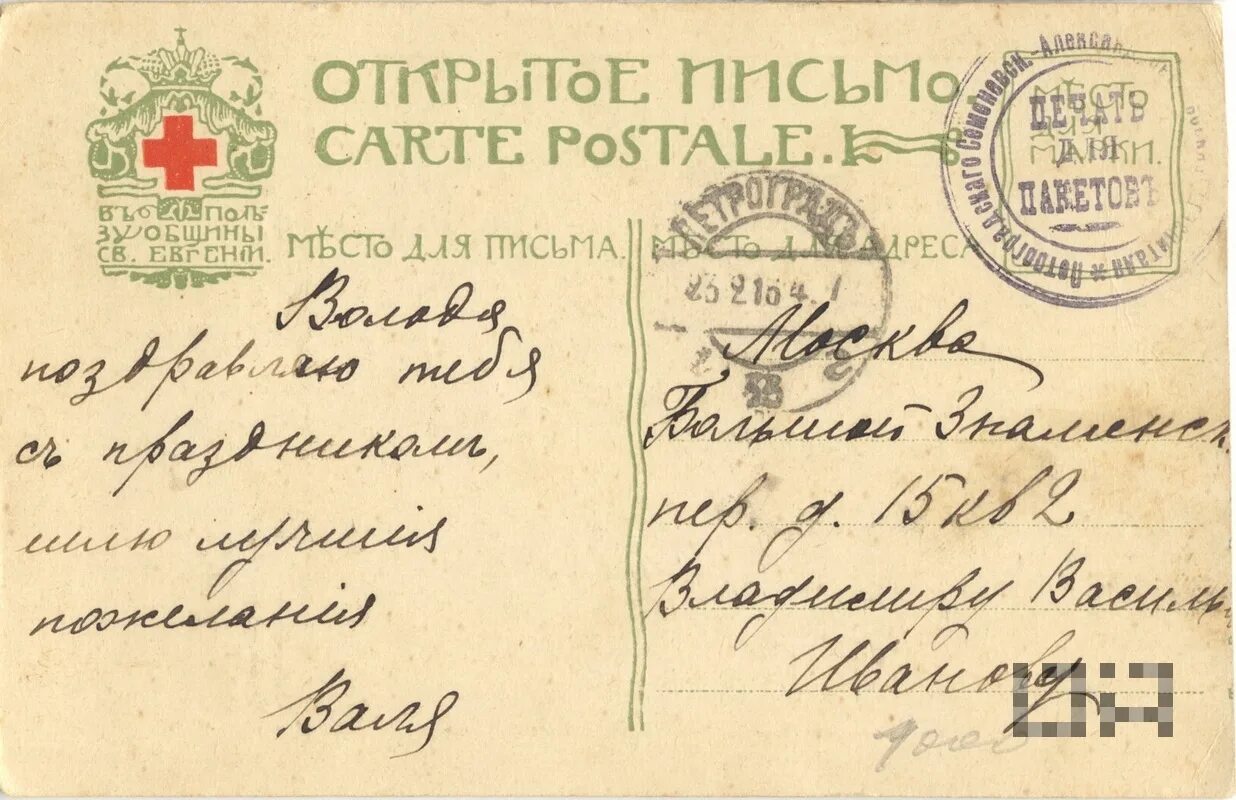 ОТКРЫТОЕ ПИСЬМО
CARTE POSTALE.
ВЪ ПОЛЬ
ЗУ ОБЩИНЫ
СВ. ЕВГЕНІИ.
МѢСТО ДЛЯ ПИСЬМА.
МѢСТО ДЛЯ АДРЕСА
МѢСТО
ДЛЯ
МАРКИ.
ПЕЧАТЬ
ДЛЯ
ПАКЕТОВЪ
Петроградскаго Семеновск.-Александ
ПЕТРОГРАДЪ
23 2 16 4
Володя
поздравляю тебя
съ праздникомъ,
шлю лучшія
пожеланія
Валя
Москва
Большой Знаменск.
пер. д. 15 кв 2
Владимиру Василь
Иванову